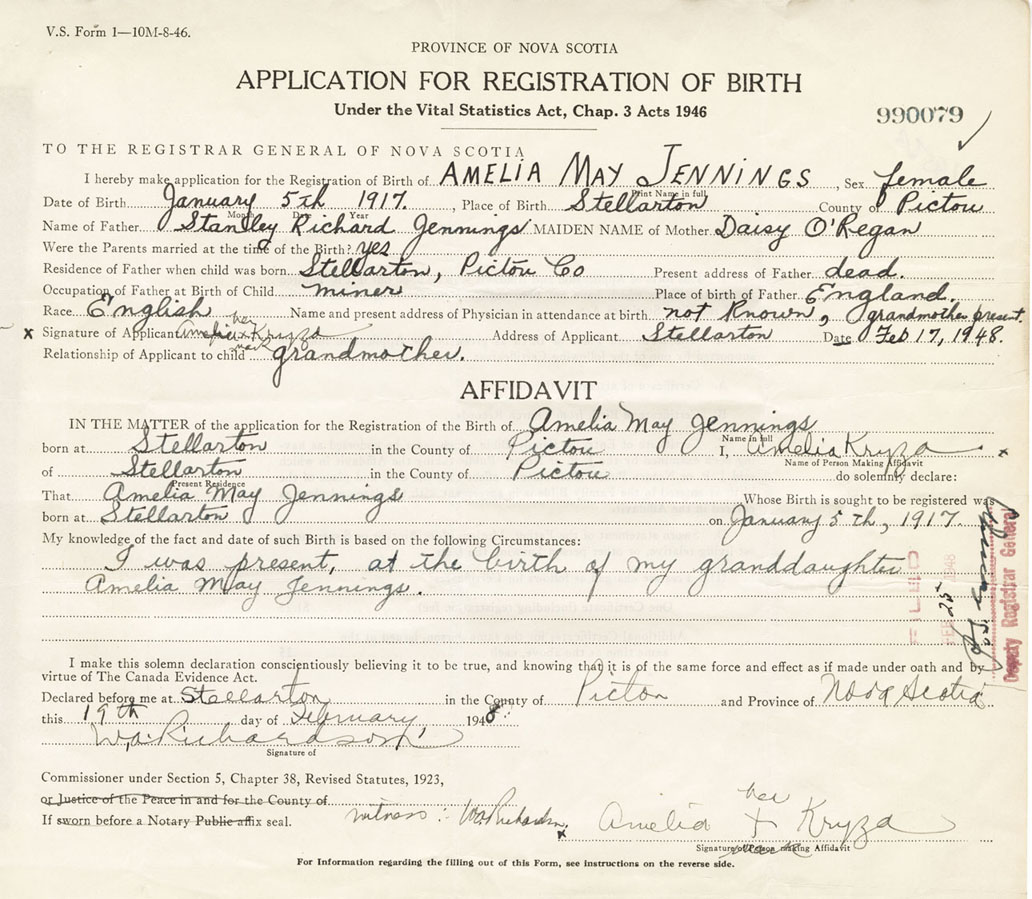 V.S. Form 1—10M-8-46.
PROVINCE OF NOVA SCOTIA
APPLICATION FOR REGISTRATION OF BIRTH
Under the Vital Statistics Act, Chap. 3 Acts 1946
990079
TO THE REGISTRAR GENERAL OF NOVA SCOTIA
I hereby make application for the Registration of Birth of AMELIA MAY JENNINGS, Sex female
Print Name in full
Date of Birth January 5th 1917., Place of Birth Stellarton County of Pictou
Month Day Year
Name of Father Stanley Richard Jennings MAIDEN NAME of Mother Daisy O'Regan
Were the Parents married at the time of the Birth? yes
Residence of Father when child was born Stellarton, Pictou Co Present address of Father dead.
Occupation of Father at Birth of Child miner Place of birth of Father England.
Race English Name and present address of Physician in attendance at birth not Known, grandmother present.
x Signature of Applicant Amelia her x mark Kryza Address of Applicant Stellarton Date Feb 17, 1948.
Relationship of Applicant to child grandmother.
AFFIDAVIT
IN THE MATTER of the application for the Registration of the Birth of Amelia May Jennings
Name in full
born at Stellarton in the County of Pictou I, Amelia Kryza x
Name of Person Making Affidavit
of Stellarton in the County of Pictou do solemnly declare:
Present Residence
That Amelia May Jennings Whose Birth is sought to be registered was
born at Stellarton on January 5th, 1917.
My knowledge of the fact and date of such Birth is based on the following Circumstances:
I was present, at the birth of my granddaughter
Amelia May Jennings.
FILED
FEB 25 1948
Deputy Registrar General
I make this solemn declaration conscientiously believing it to be true, and knowing that it is of the same force and effect as if made under oath and by
virtue of The Canada Evidence Act.
Declared before me at Stellarton in the County of Picton and Province of Nova Scotia.
this 19th day of February 1948.
W.A. Richardson
Signature of
Commissioner under Section 5, Chapter 38, Revised Statutes, 1923,
or Justice of the Peace in and for the County of
If sworn before a Notary Public affix seal.
witness: W.A. Richardson. x Amelia her + mark Kryza
Signature of Person making Affidavit
For Information regarding the filling out of this Form, see instructions on the reverse side.